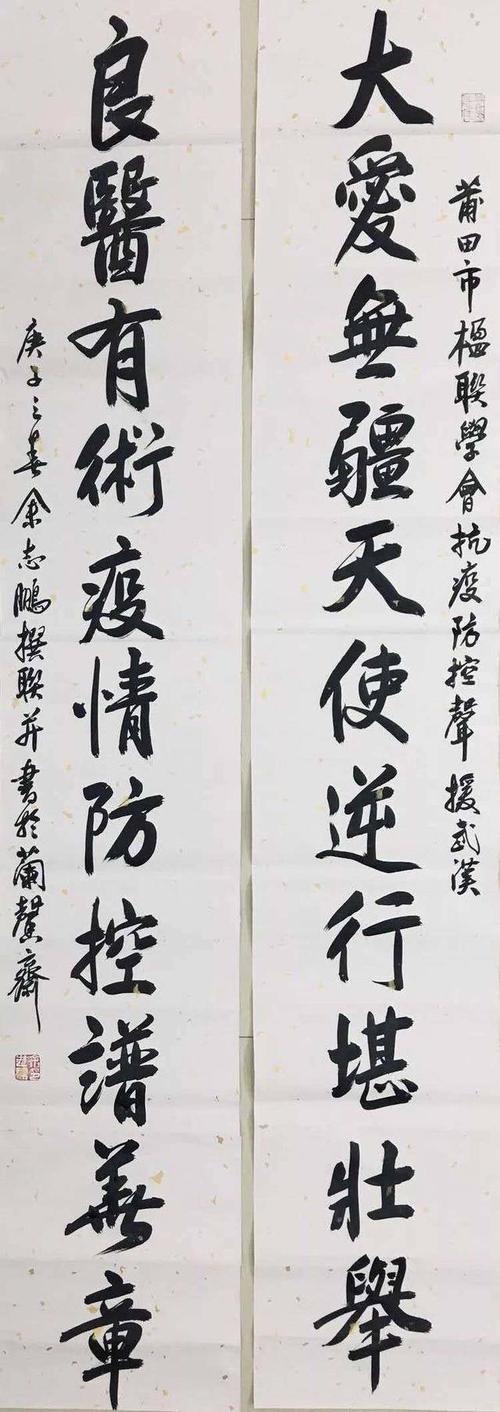 莆田市楹聯學會抗疫防控聲援武漢
大愛無疆天使逆行堪壯舉
良醫有術疫情防控譜華章
庚子之春余志鵬撰聯并書於蘭馨齋